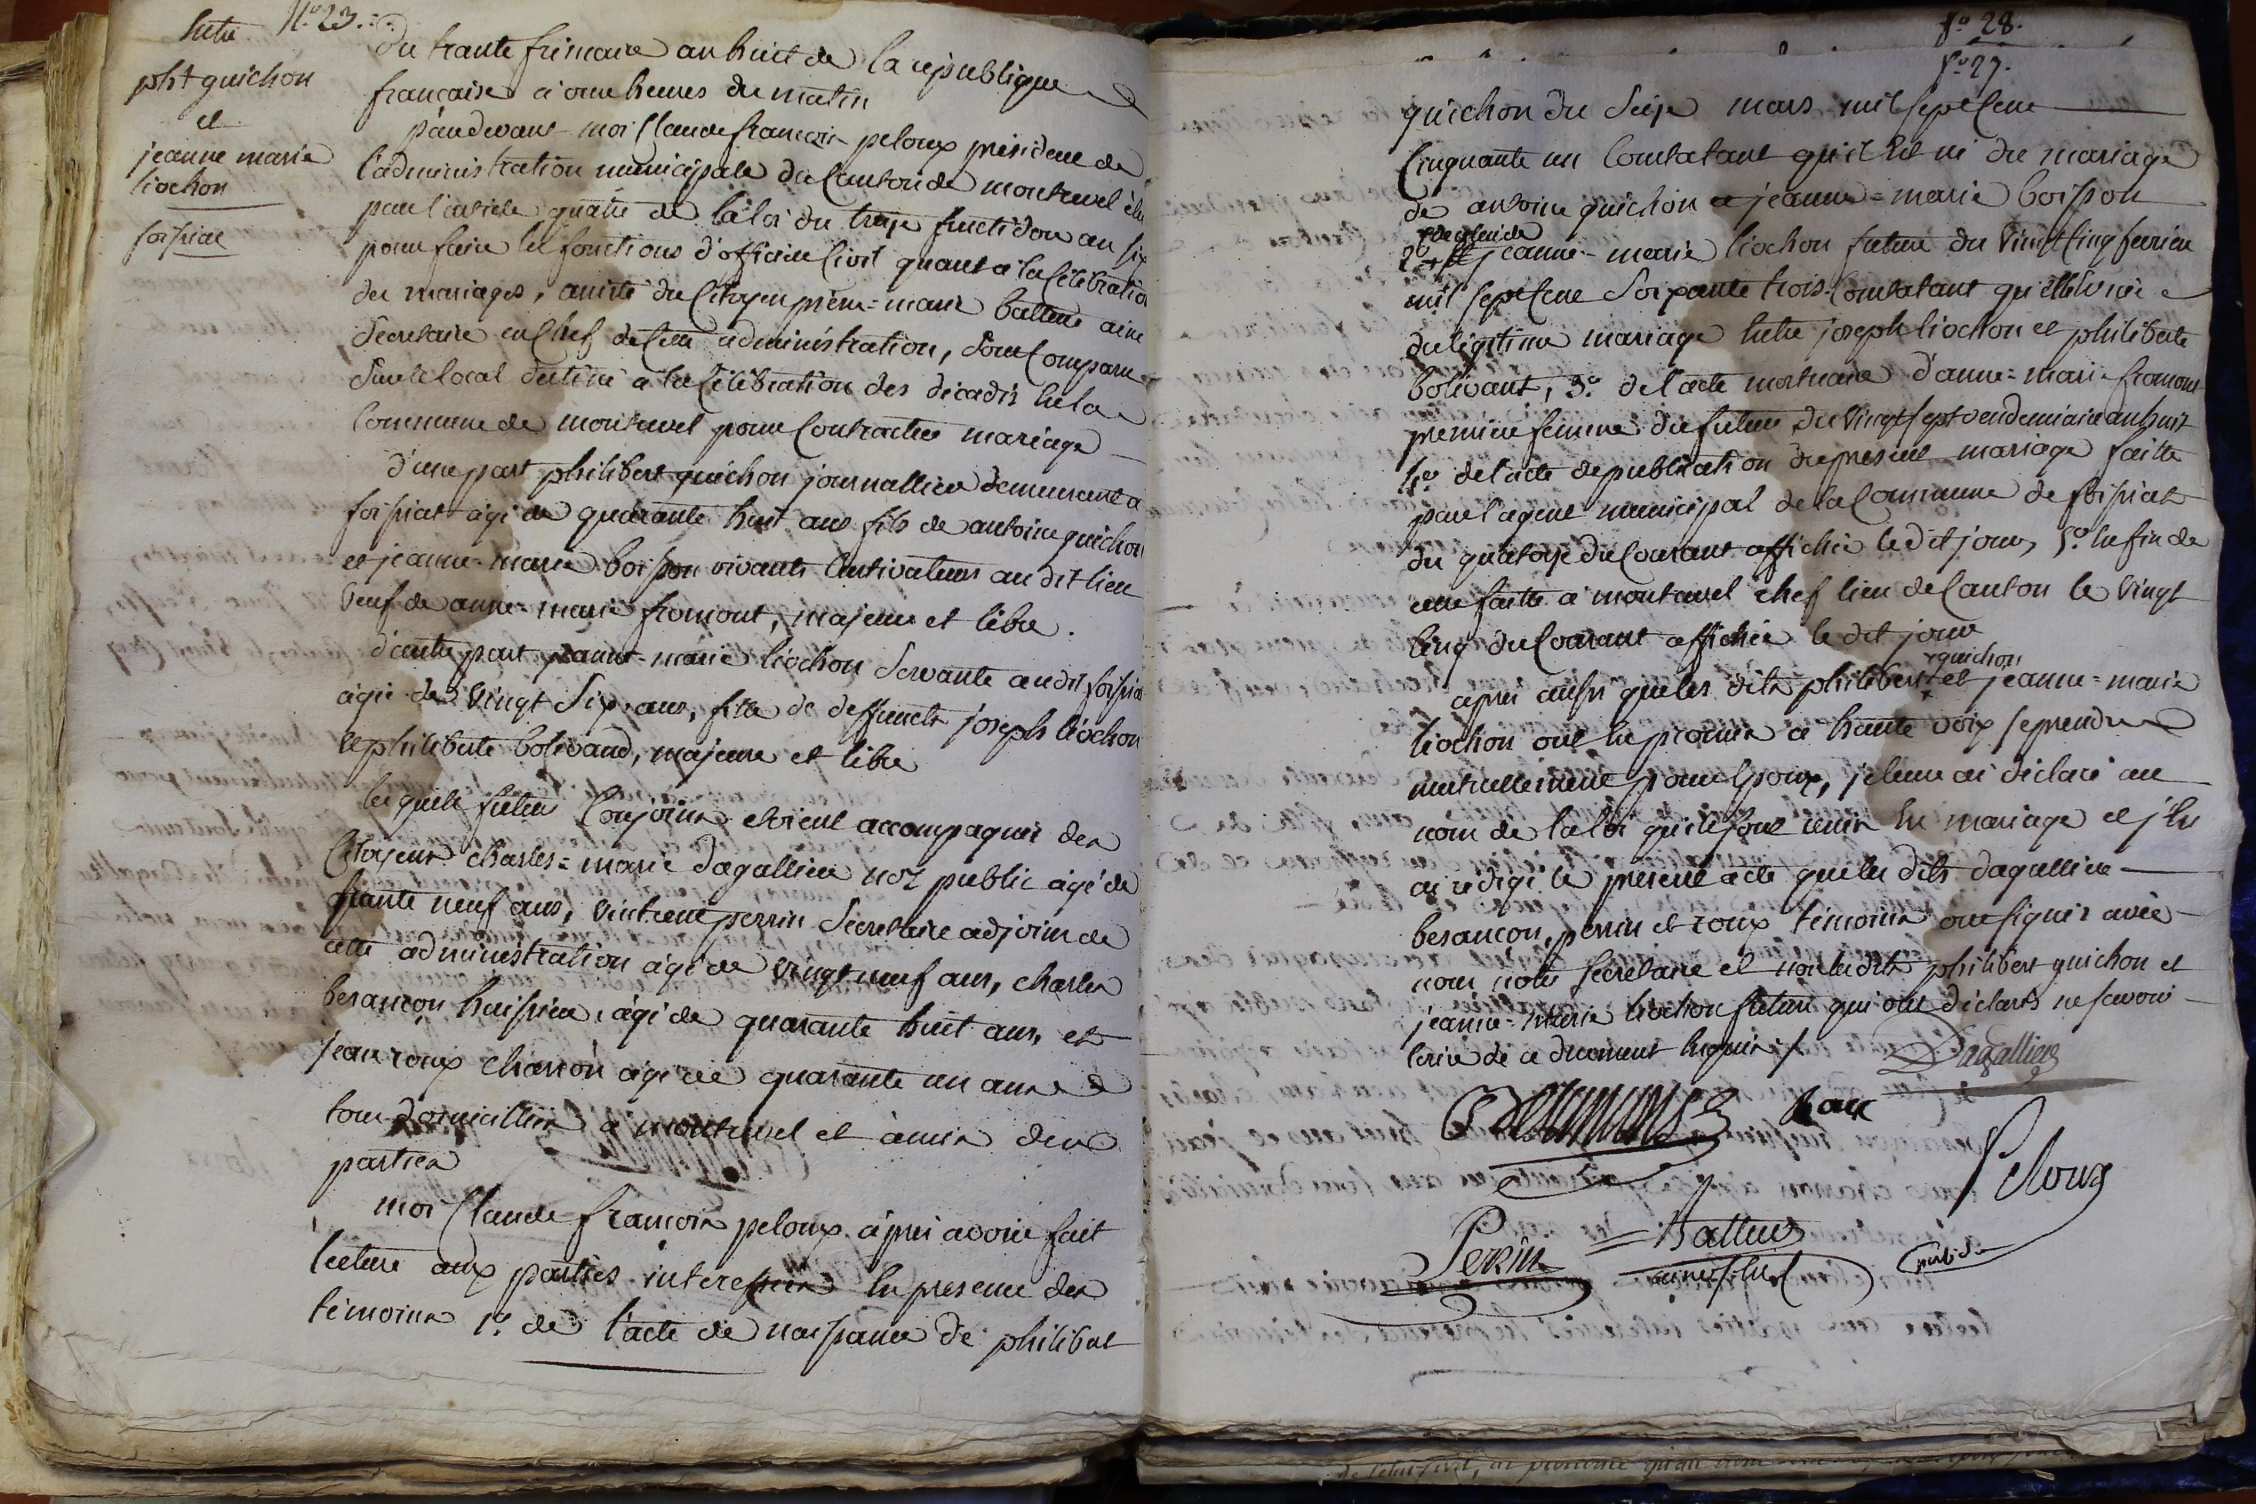 N.o 23.
Entre
pht guichon
et
jeanne marie
liochon
foissiat
du trante frimaire an huit de la republique
francaise a onze heures du matin
pardevant moi Claude francois peloux president de
l'administration municipale du Canton de montrevel élu
par l'article quatre de la loi du treize fructidor an six
pour faire les fonctions d'officier Civil quant a la Célébration
des mariages, assisté du Citoyen pierre-marie batteur ainé
Secretaire en Chef de Cette administration, sont Comparu
Sur le local destiné a la Célébration des décadis en la
Commune de montrevel pour Contracter mariage
d'une part philibert guichon journallier demeurant a
foissiat agé de quarante huit ans fils de antoine guichon
et jeanne-marie boisson vivants Cultivateurs au dit lieu
Veuf de anne-marie fromont, majeur et libre.
d'autre part jeanne-marie liochon Servante au dit foissiat
agée de vingt Six ans, fille de deffunts joseph liochon
et philiberte bolivand, majeure et libre
les quels futurs Conjoins etoient accompagnés des
Citoyens charles=marie dagallier not public agé de
trante neuf ans, Vincent perrin Secretaire adjoint de
cette administration agé de vingt neuf ans, charles
besancon huissier, agé de quarante huit ans, et
jean roux charron agé de quarante un ans
tous domicilliés a montrevel et amis des
parties
moi Claude francois peloux apres avoir fait
lecture aux parties interessées en presence des
témoins 1.o de l'acte de naissance de philibert
f.o 28.
f.o 27.
guichon du Seize mars mil sept Cent
Cinquante un Constatant qu'il est né du mariage
de antoine guichon et jeanne=marie boisson
2.o jeanne-marie liochon future du Vingt Cinq fevrier
mil sept Cent Soixante trois Constatant qu'elle est née
du légitime mariage entre joseph liochon et philiberte
bolivant, 3.o de l'acte mortuaire d'anne-marie fromont
premiere femme du futur du Vingt sept vendemiaire an huit
4.o de l'acte de publication du present mariage faitte
par l'agent municipal de la Commune de foissiat
du quatorze du Courant affichée le dit jour, 5.o enfin de
celle faitte a montrevel chef lieu de Canton le Vingt
Cinq du Courant affichée le dit jour
guichon
apres aussi que les dits philibert et jeanne=marie
liochon ont eu promis a haute voix se prendre
mutuellement pour Epoux, je leur ai déclaré au
nom de la loi qu'ils sont unis en mariage et j'en
ai redigé le present acte que les dits dagallier
besancon, perrin et roux témoins ont signés avec
nous notre secretaire et non les dits philibert guichon et
jeanne-marie liochon futurs qui ont declarés ne savoir
Ecrire de ce duement enquis /.
Dagallier
Besancon
Roux
Peloux
Perrin
Batteur